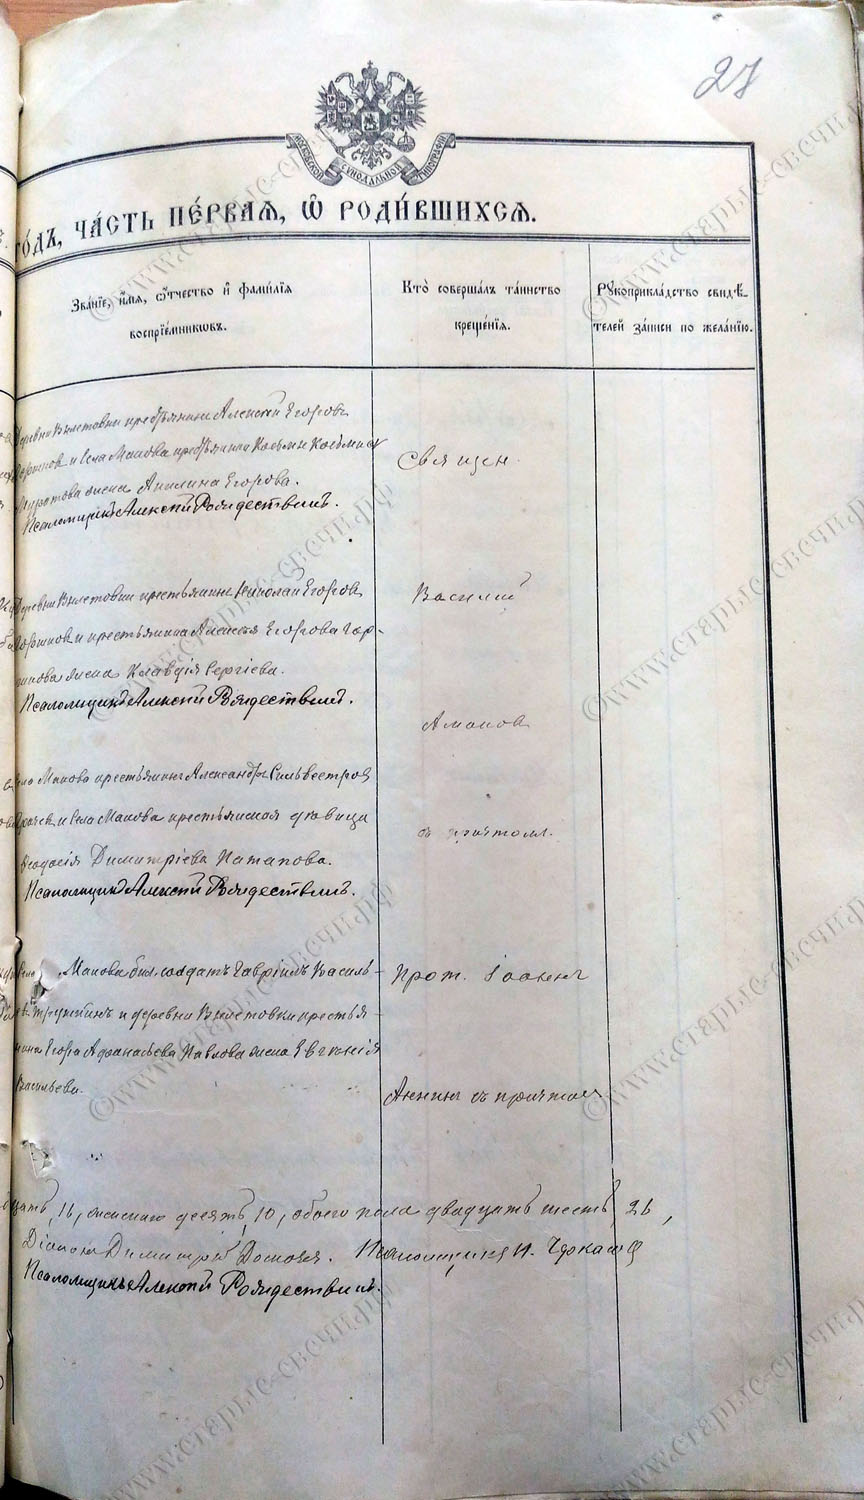 28
МОСКОВСКОЙ СѴНОДАЛЬНОЙ ТИПОГРАФІИ
го́дъ, ча́сть пе́рваѧ, ѡ҆ роди́вшихсѧ.
Зва́нїе, и҆́мѧ, ѻ҆́тчество и҆ фами́лїѧ
воспрїе́мникѡвъ.
Кто̀ соверша́лъ та́инство
креще́нїѧ.
Рꙋкоприкла́дство свидѣ-
телей за́писи по жела́нїю.
Деревни Вилетовки крестьянинъ Алексей Егоровъ
и села Макова крестьянина Косьмы Косьмина
Муратова жена Акилина Егорова.
Псаломщикъ Алексѣй Рождествинъ.
Священ.
Деревни Вилетовки крестьянинъ Николай Егоровъ
Горшков и крестьянина Алексея Егорова Гор-
шкова жена Клавдія Сергіева.
Псаломщикъ Алексѣй Рождествинъ.
Василий
Аманов
Села Макова крестьянинъ Александръ Сильвестров
и села Макова крестьянская девица
Феодосія Димитріева Потапова.
Псаломщикъ Алексѣй Рождествинъ.
съ причтом.
Села Макова бил. солдатъ Гавріилъ Василь-
ев Тружкинъ и деревни Вилетовки крестья-
нина Егора Афанасьева Павлова жена Евгенія
Васильева.
Прот. Іоаннъ
Аннин съ причтом
16, женскаго десять, 10, обоего пола двадцать шесть, 26,
Діаконъ Димитрій. Псаломщикъ Н. Черкасов
Псаломщикъ Алексѣй Рождествинъ.
©www.старые-свечи.рф